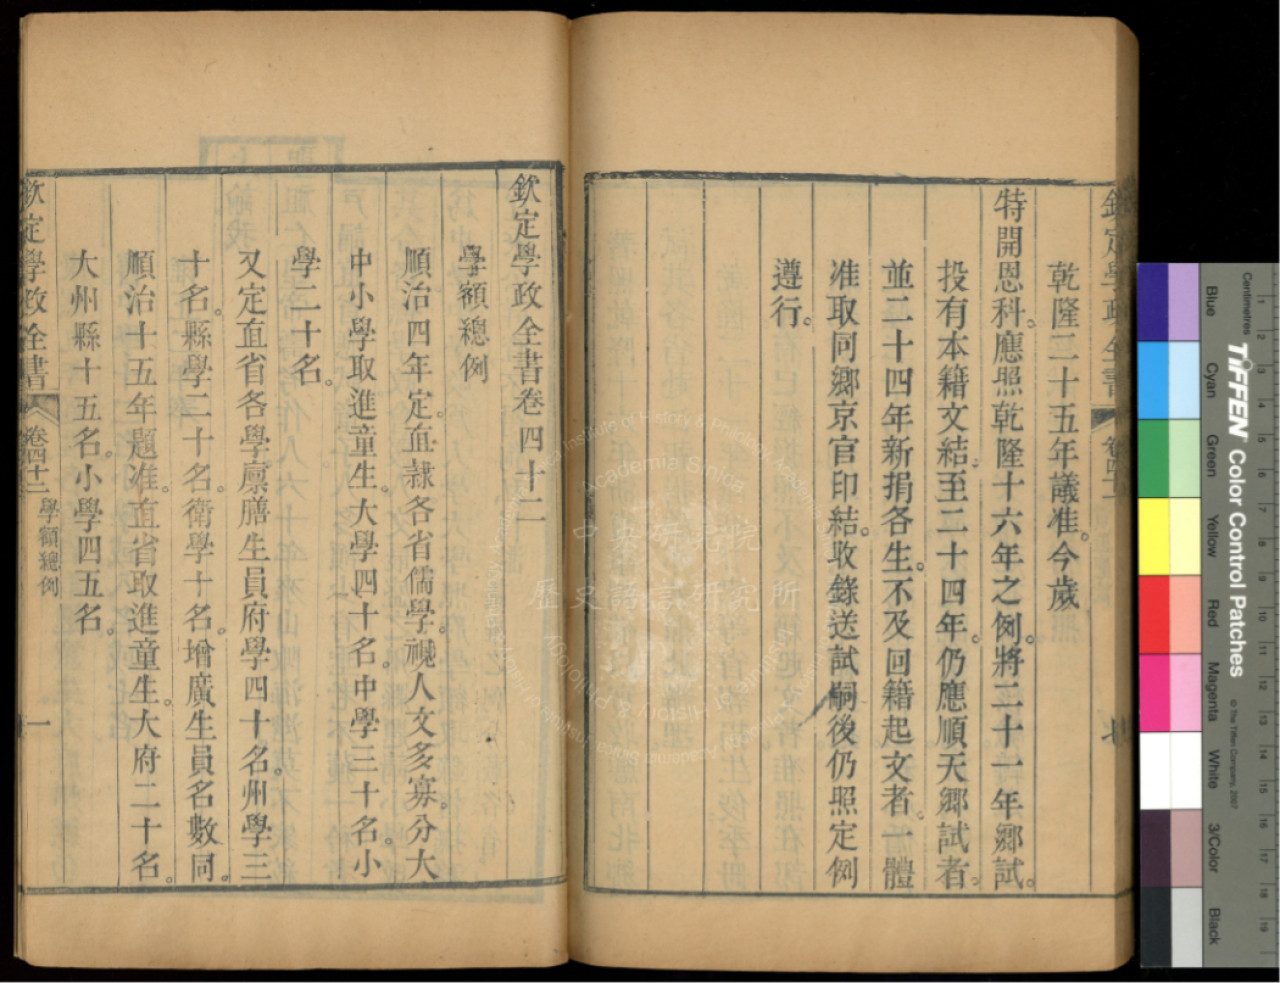 乾隆二十五年議准。今歲
特開恩科。應照乾隆十六年之例。將二十一年鄉試。
投有本籍文結。至二十四年。仍應順天鄉試者。
並二十四年新捐各生。不及回籍起文者。一體
准取同鄉京官印結。收錄送試。嗣後仍照定例
遵行。
欽定學政全書卷四十二
學額總例
順治四年定。直隸各省儒學。視人文多寡。分大
中小學取進童生。大學四十名。中學三十名。小
學二十名。
又定直省各學廩膳生員。府學四十名。州學三
十名。縣學二十名。衛學十名。增廣生員名數同。
順治十五年題准。直省取進童生。大府二十名。
大州縣十五名。小學四五名。
欽定學政全書
卷四十二
學額總例
一
中央研究院
歷史語言研究所
Institute of History & Philology, Academia Sinica
TIFFEN Color Control Patches
© The Tiffen Company, 2007
Centimetres
Blue
Cyan
Green
Yellow
Red
Magenta
White
3/Color
Black